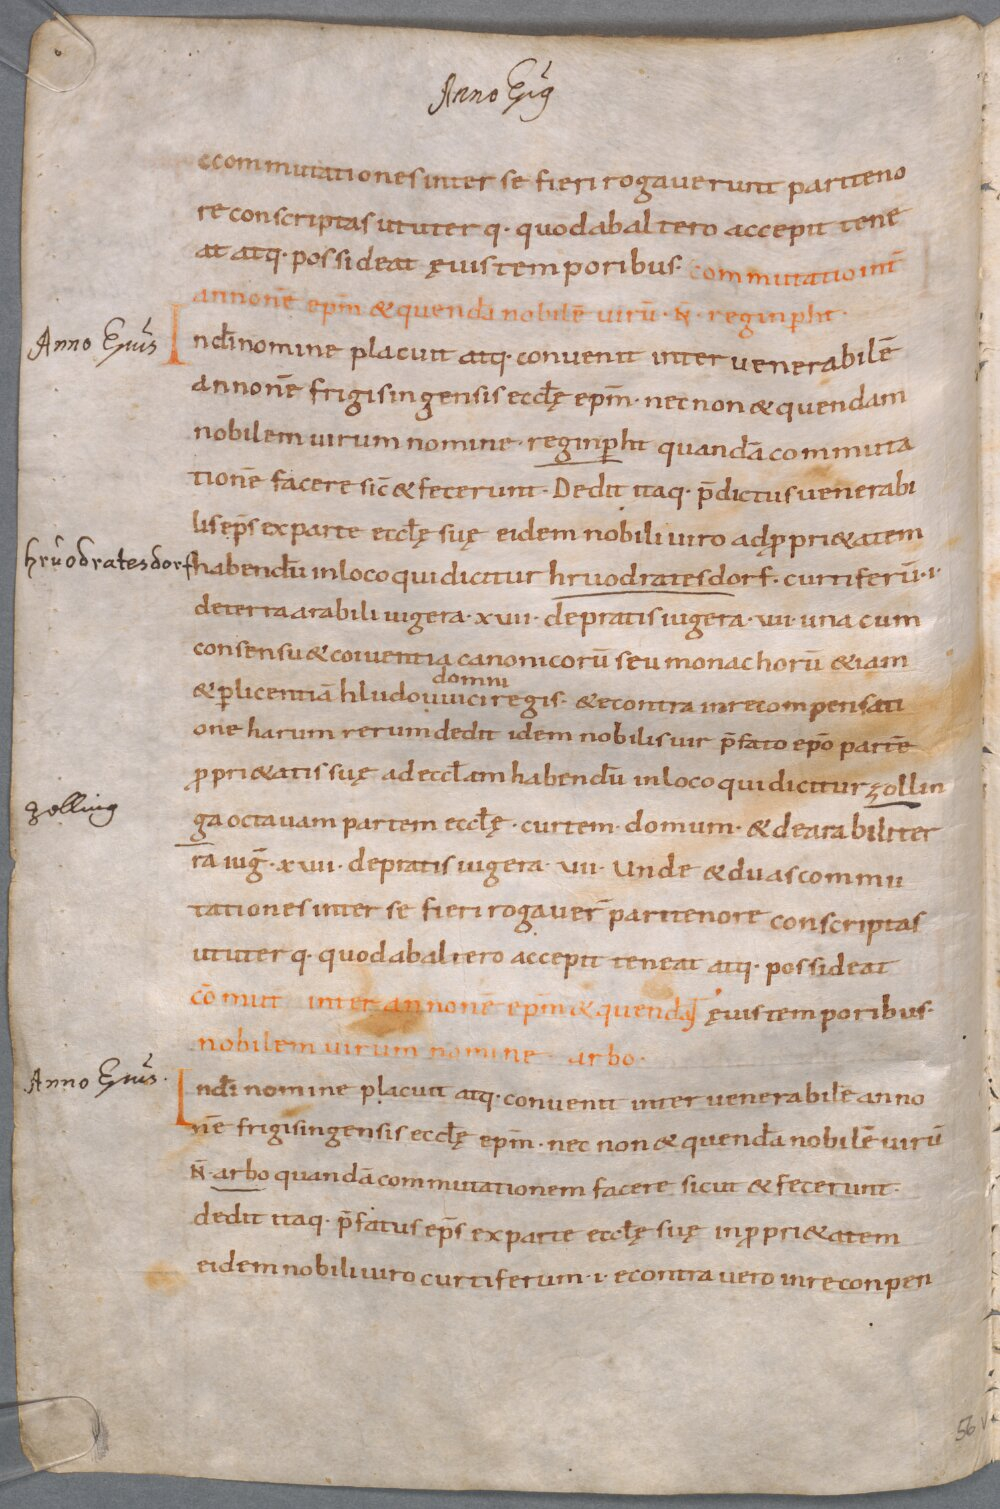 Anno Eiꝰ
ccommutationes inter se fieri rogauerunt pariteno
re conscriptas ut uterq· quod ab altero accepit tene
at atq· possideat ęuis temporibus· commutatio int̄
annonē ep̄m & quendā nobilē uirū· N̄· reginp̱ht·
Anno Eiuſ
In dī nomine placuit atq· convenit inter venerabilē
annonē frigisingensis eccłę ep̄m· nec non & quendam
nobilem uirum nomine· reginp̱ht quandā commuta
tionē facere sic̄ & fecerunt· Dedit itaq· p̄dictus venerabi
lis ep̄s ex parte eccłę suę eidem nobili uiro ad ꝓpri&atem
hrŭodratesdorf
habendū in loco qui dicitur hruodratesdorf· curtiferū·i·
de terra arabili iugera· xvii· de pratis iugera· vii· una cum
consensu & coiuentia canonicorū seu monachorū &iam
domni
& p̱ licentiā hludouuici regis· & econtra in recompensati
one harum rerum dedit idem nobilis uir p̄fato ep̄o partē
ꝓpri&atis suę ad eccłam habendū in loco qui dicitur zollin
zolling
ga octauam partem eccłę· curtem· domum· & de arabili ter
ra iuḡ· xvii· de pratis iugera· vii· Unde & duas commu
tationes inter se fieri rogauer̄ pari tenore conscriptas
ut uterq· quod ab altero accepit teneat atq· possideat
cōmut inter annonē ep̄m & quendā ęuis temporibus·
nobilem uirum nomine· arbo·
Anno Eiuſ·
In dī nomine placuit atq· convenit inter venerabilē anno
nē frigisingensis eccłę ep̄m· nec non & quendā nobilē uirū
N̄· arbo quandā commutationem facere sicut & fecerunt·
dedit itaq· p̄fatus ep̄s ex parte eccłę suę in ꝓpri&atem
eidem nobili uiro curtiferum· i· econtra uero in reconpen
56 v